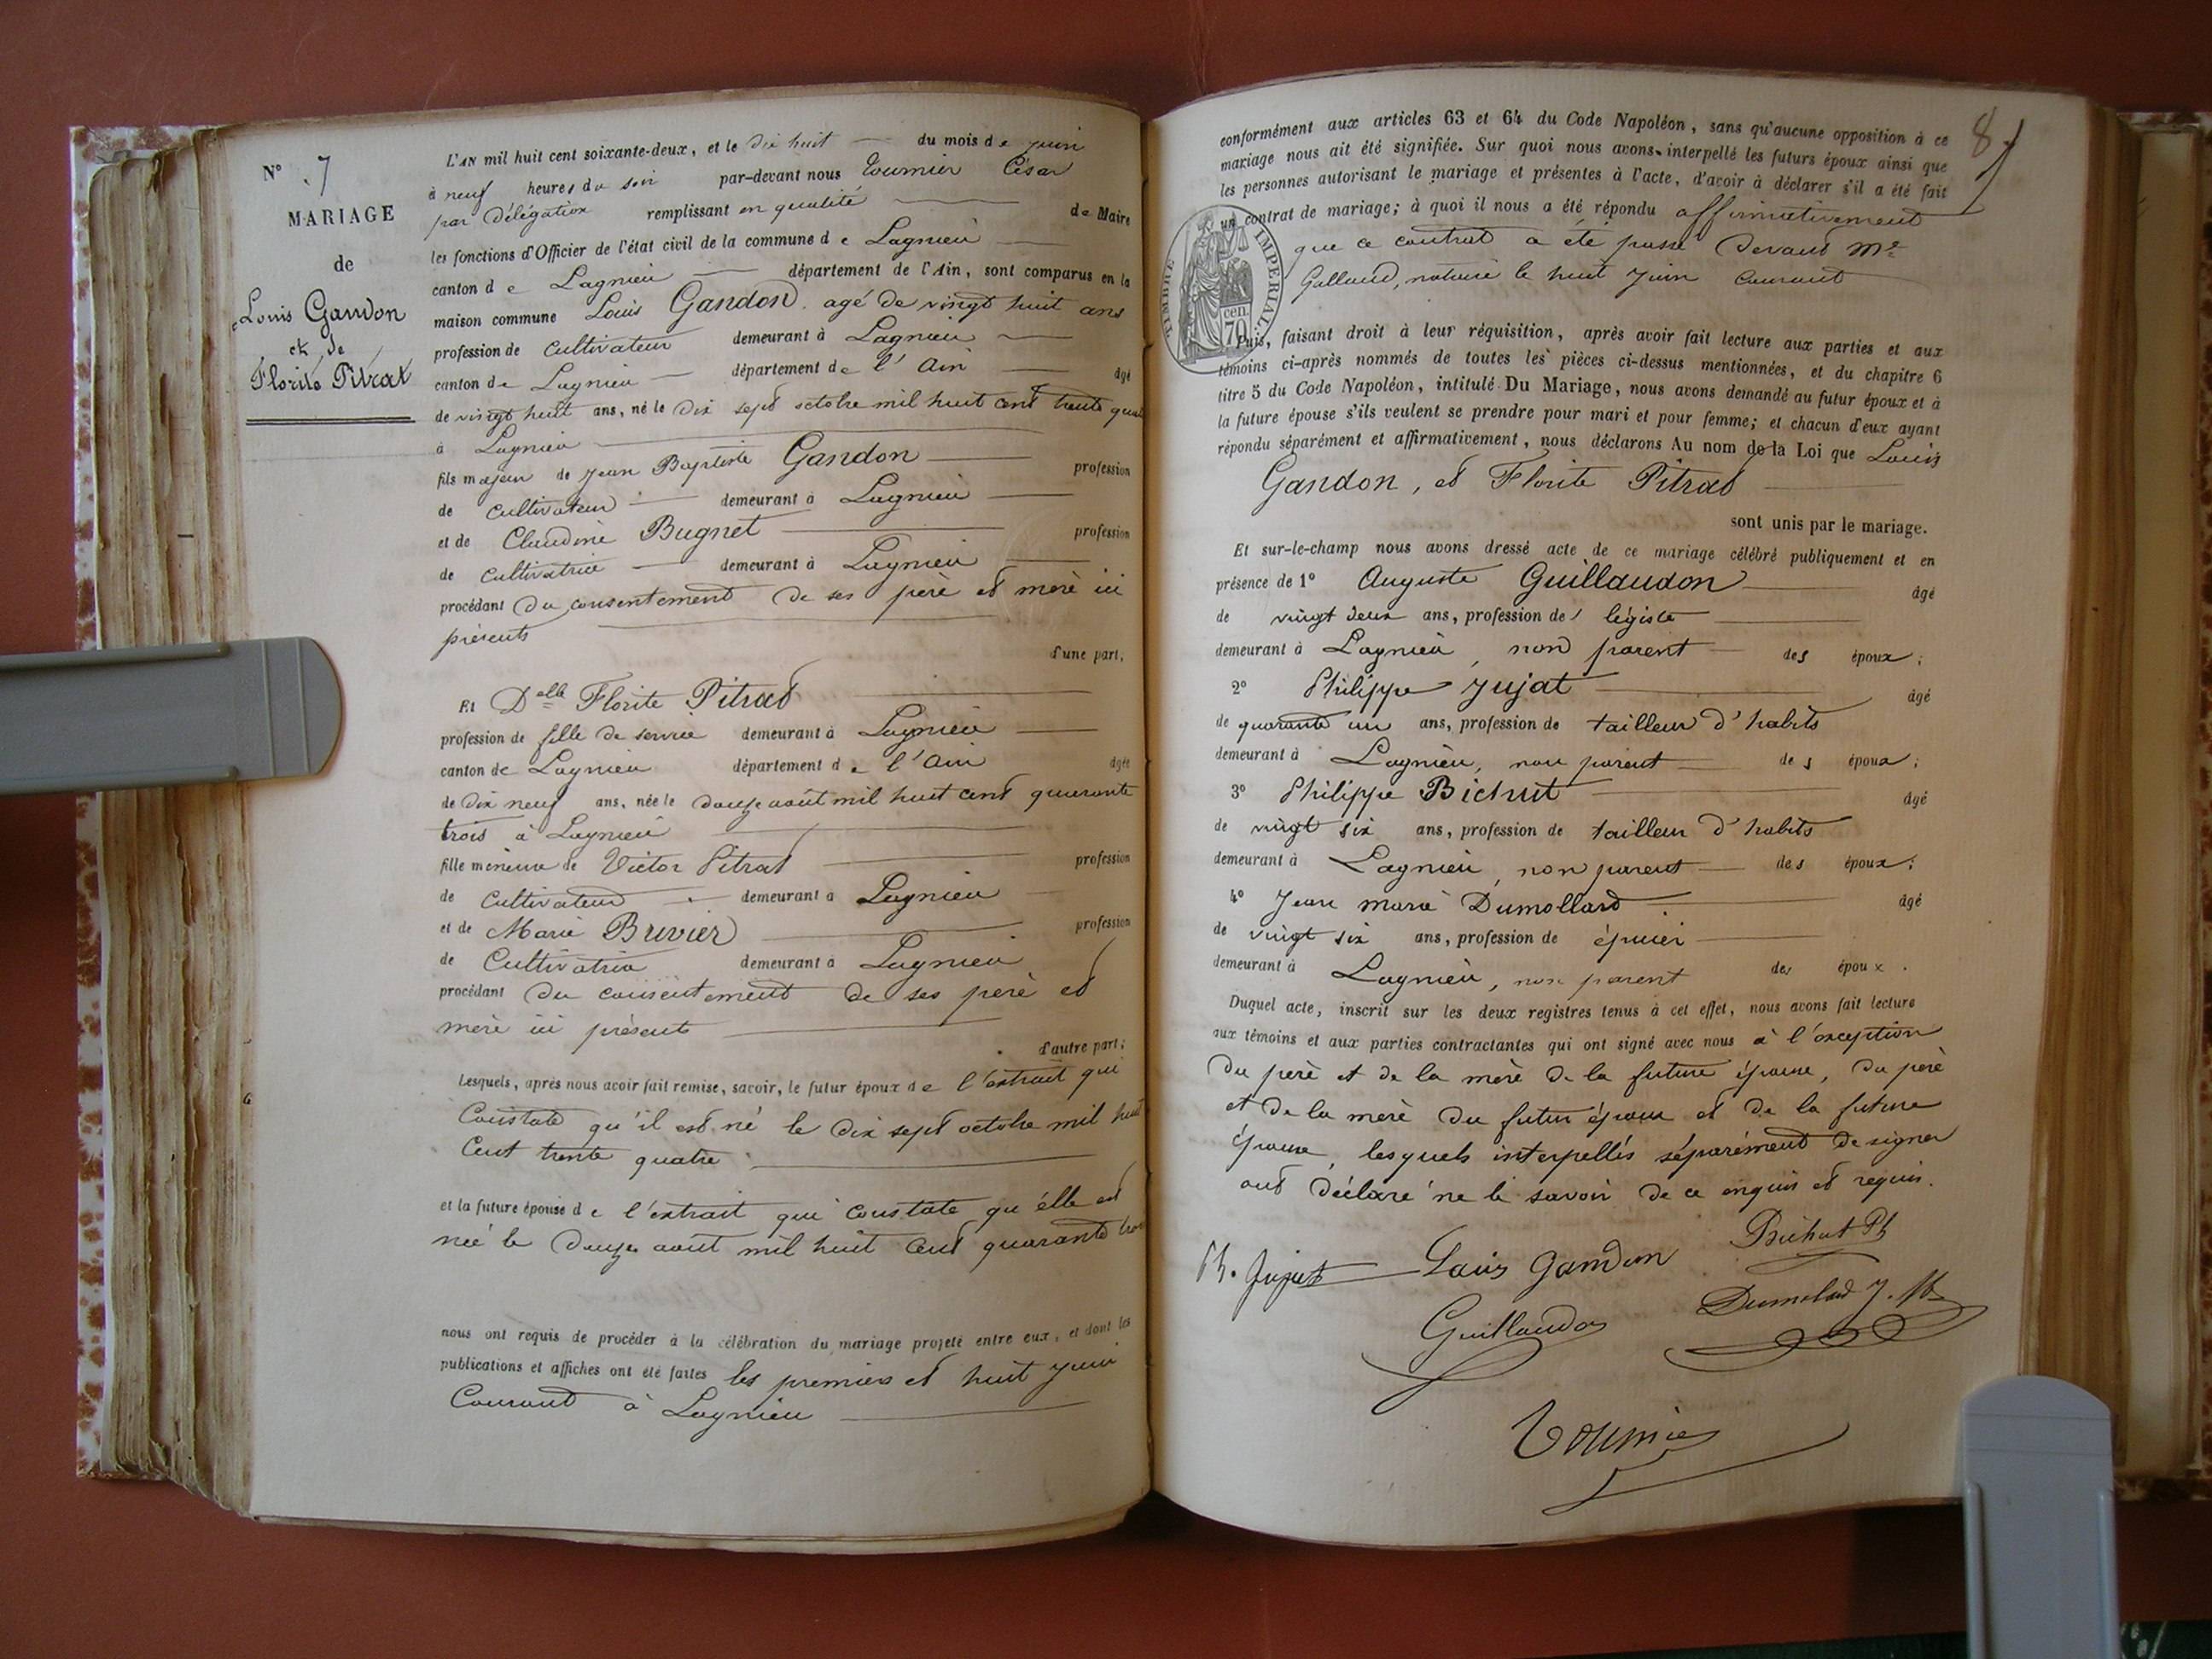 N° 7
MARIAGE
de
Louis Gandon
et de
Florite Pitrat
L'AN mil huit cent soixante-deux, et le dix huit du mois de juin
à neuf heures du soir par-devant nous Tournier César
par délégation remplissant en qualité de Maire
les fonctions d'Officier de l'état civil de la commune de Lagnieu
canton de Lagnieu département de l'Ain, sont comparus en la
maison commune Louis Gandon agé de vingt huit ans
profession de cultivateur demeurant à Lagnieu
canton de Lagnieu département de l'Ain âgé
de vingt huit ans, né le dix sept octobre mil huit cent trente quatre
à Lagnieu
fils majeur de Jean Baptiste Gandon profession
de cultivateur demeurant à Lagnieu
et de Claudine Bugnet profession
de cultivatrice demeurant à Lagnieu
procédant du consentement de ses père et mère ici
présents
d'une part,
Et Delle Florite Pitrat
profession de fille de service demeurant à Lagnieu
canton de Lagnieu département de l'Ain âgée
de dix neuf ans, née le douze août mil huit cent quarante
trois à Lagnieu
fille mineure de Victor Pitrat profession
de cultivateur demeurant à Lagnieu
et de Marie Buvier profession
de Cultivatrice demeurant à Lagnieu
procédant du consentement de ses père et
mère ici présents
d'autre part;
Lesquels, après nous avoir fait remise, savoir, le futur époux de l'extrait qui
Constate qu'il est né le dix sept octobre mil huit
Cent trente quatre
et la future épouse de l'extrait qui constate qu'elle est
née le douze août mil huit cent quarante trois
nous ont requis de procéder à la célébration du mariage projeté entre eux, et dont les
publications et affiches ont été faites les premier et huit juin
Courant à Lagnieu
8
conformément aux articles 63 et 64 du Code Napoléon, sans qu'aucune opposition à ce
mariage nous ait été signifiée. Sur quoi nous avons interpellé les futurs époux ainsi que
les personnes autorisant le mariage et présentes à l'acte, d'avoir à déclarer s'il a été fait
un contrat de mariage; à quoi il nous a été répondu affirmativement
que ce contrat a été passé devant Me
Galland, notaire le huit juin courant
TIMBRE IMPERIAL
70 cen.
Puis, faisant droit à leur réquisition, après avoir fait lecture aux parties et aux
témoins ci-après nommés de toutes les pièces ci-dessus mentionnées, et du chapitre 6
titre 5 du Code Napoléon, intitulé Du Mariage, nous avons demandé au futur époux et à
la future épouse s'ils veulent se prendre pour mari et pour femme; et chacun d'eux ayant
répondu séparément et affirmativement, nous déclarons Au nom de la Loi que Louis
Gandon, et Florite Pitrat
sont unis par le mariage.
Et sur-le-champ nous avons dressé acte de ce mariage célébré publiquement et en
présence de 1° Auguste Guillaudon âgé
de vingt deux ans, profession de légiste
demeurant à Lagnieu, non parent des époux;
2° Philippe Jujat âgé
de quarante un ans, profession de tailleur d'habits
demeurant à Lagnieu, non parent des époux;
3° Philippe Bichut âgé
de vingt six ans, profession de tailleur d'habits
demeurant à Lagnieu, non parent des époux;
4° Jean marie Dumollard âgé
de vingt six ans, profession de épicier
demeurant à Lagnieu, non parent des époux.
Duquel acte, inscrit sur les deux registres tenus à cet effet, nous avons fait lecture
aux témoins et aux parties contractantes qui ont signé avec nous à l'exception
du père et de la mère de la future épouse, du père
et de la mère du futur époux et de la future
épouse, lesquels interpellés séparément de signer
ont déclaré ne le savoir de ce enquis et requis.
Bichut Ph
Ph. Jujat Louis Gandon
Guillaudon Dumolard J. M
Tournier